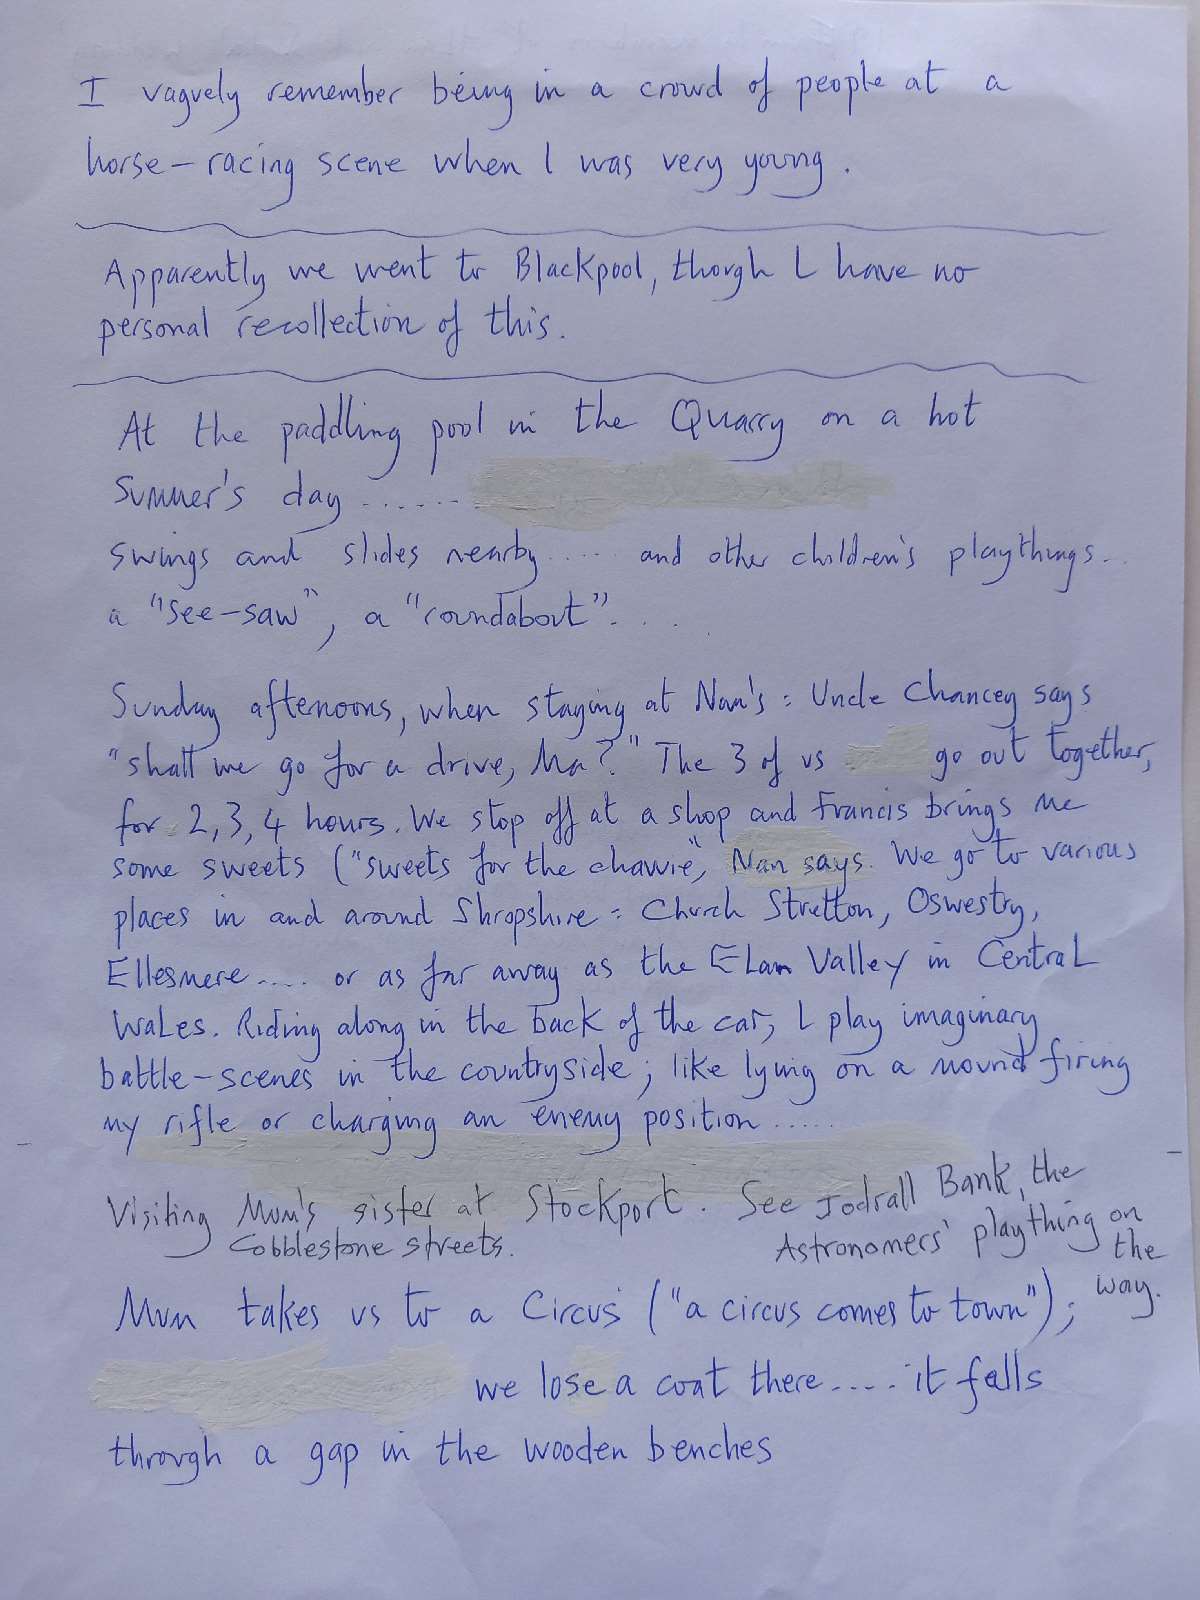 I vaguely remember being in a crowd of people at a
horse-racing scene when I was very young.
Apparently we went to Blackpool, though I have no
personal recollection of this.
At the paddling pool in the Quarry on a hot
Summer's day .......
swings and slides nearby..... and other children's playthings...
a "see-saw", a "roundabout"....
Sunday afternoons, when staying at Nan's: Uncle Chancey says
"shall we go for a drive, Ma?" The 3 of us go out together,
for 2, 3, 4 hours. We stop off at a shop and Francis brings me
some sweets ("sweets for the chawie", Nan says. We go to various
places in and around Shropshire: Church Stretton, Oswestry,
Ellesmere.... or as far away as the Elan Valley in Central
Wales. Riding along in the back of the car, I play imaginary
battle-scenes in the countryside; like lying on a mound firing
my rifle or charging an enemy position......
Visiting Mum's sister at Stockport. See Jodrall Bank, the
Cobblestone streets. Astronomers' plaything on
the
way.
Mum takes us to a Circus ("a circus comes to town");
we lose a coat there..... it falls
through a gap in the wooden benches